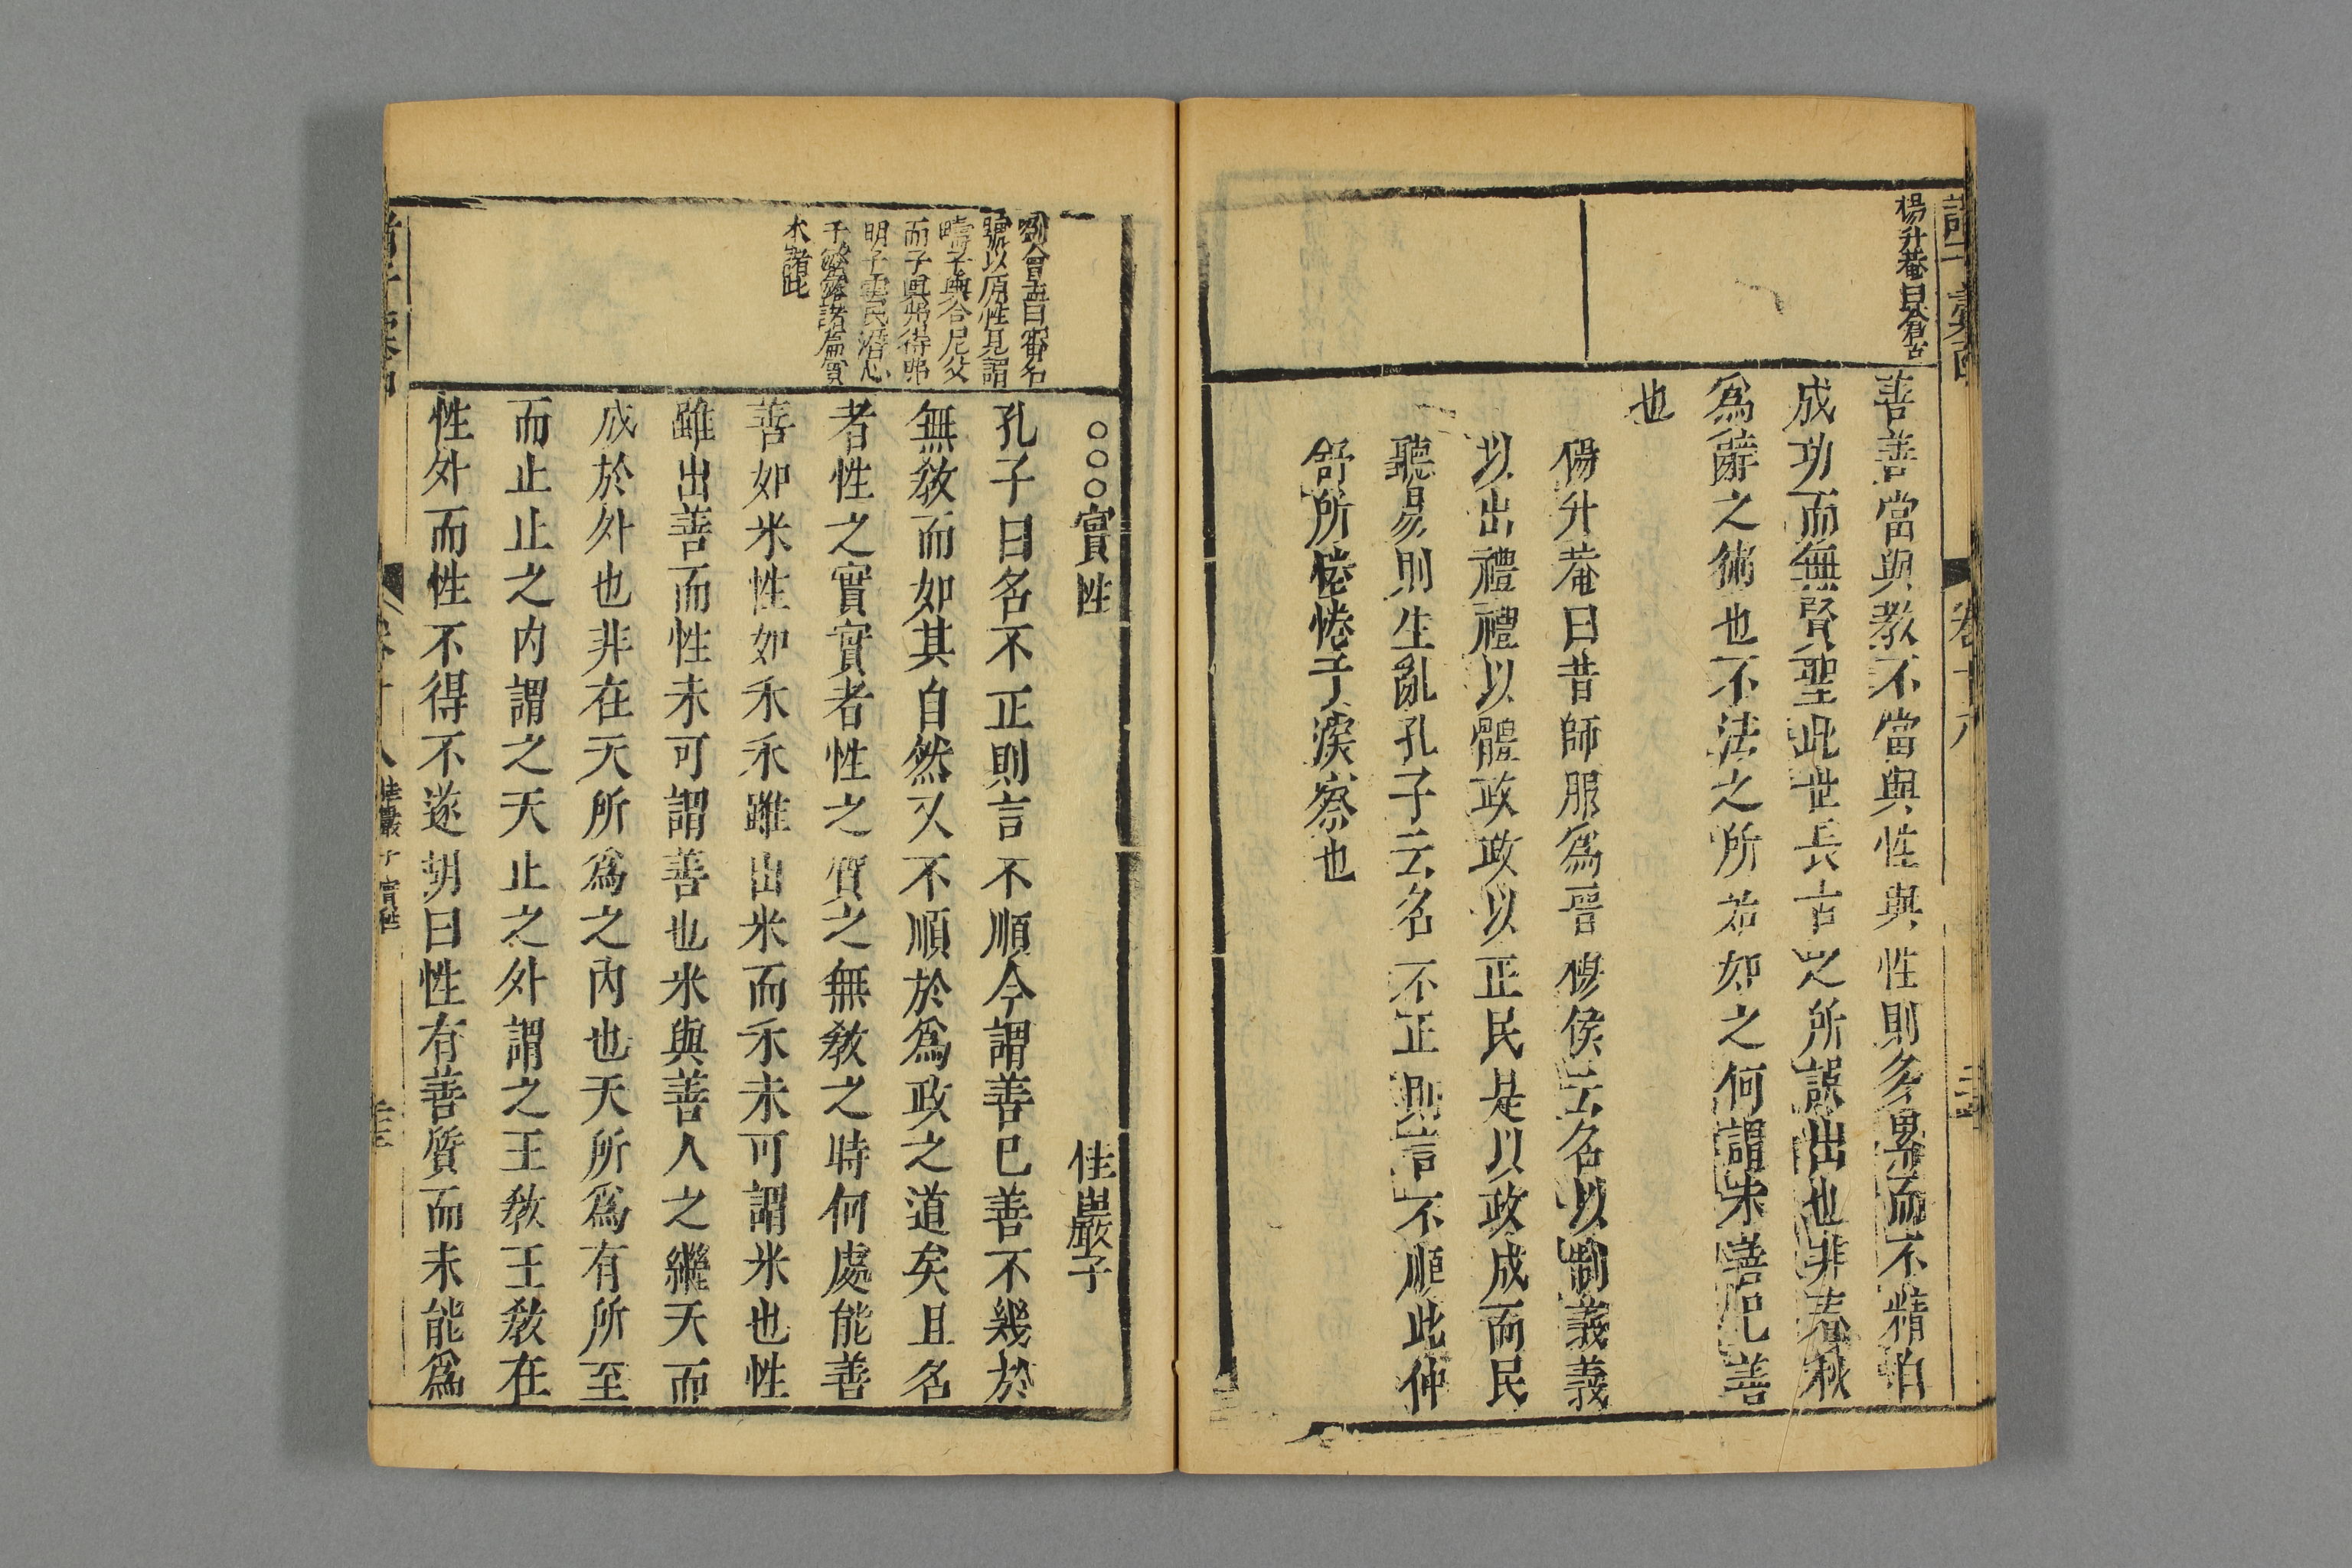 楊升菴曰倉古
善善當與教不當與性與性則多累而不精自
成功而無賢聖此世長者之所誤出也非春秋
爲辭之術也不法之所爲如之何謂未善已善
也
楊升菴曰昔師服爲晉穆侯云名以制義義
以出禮禮以體政政以正民是以政成而民
聽易則生亂孔子云名不正則言不順此仲
舒所惓惓于深察也
卷十八
○○○實性
佳巖子
劉會孟曰審名
號以原性見謂
疇子與合尼父
而子輿弗得弗
明子雲民潛心
于繁露諸篇質
木諸此
孔子曰名不正則言不順今謂善已善不幾於
無教而如其自然又不順於爲政之道矣且名
者性之實實者性之質之無教之時何處能善
善如米性如禾禾雖出米而禾未可謂米也性
雖出善而性未可謂善也米與善人之繼天而
成於外也非在天所爲之內也天所爲有所至
而止止之内謂之天止之外謂之王敎王敎在
性外而性不得不遂胡曰性有善質而未能爲
佳巖子實性